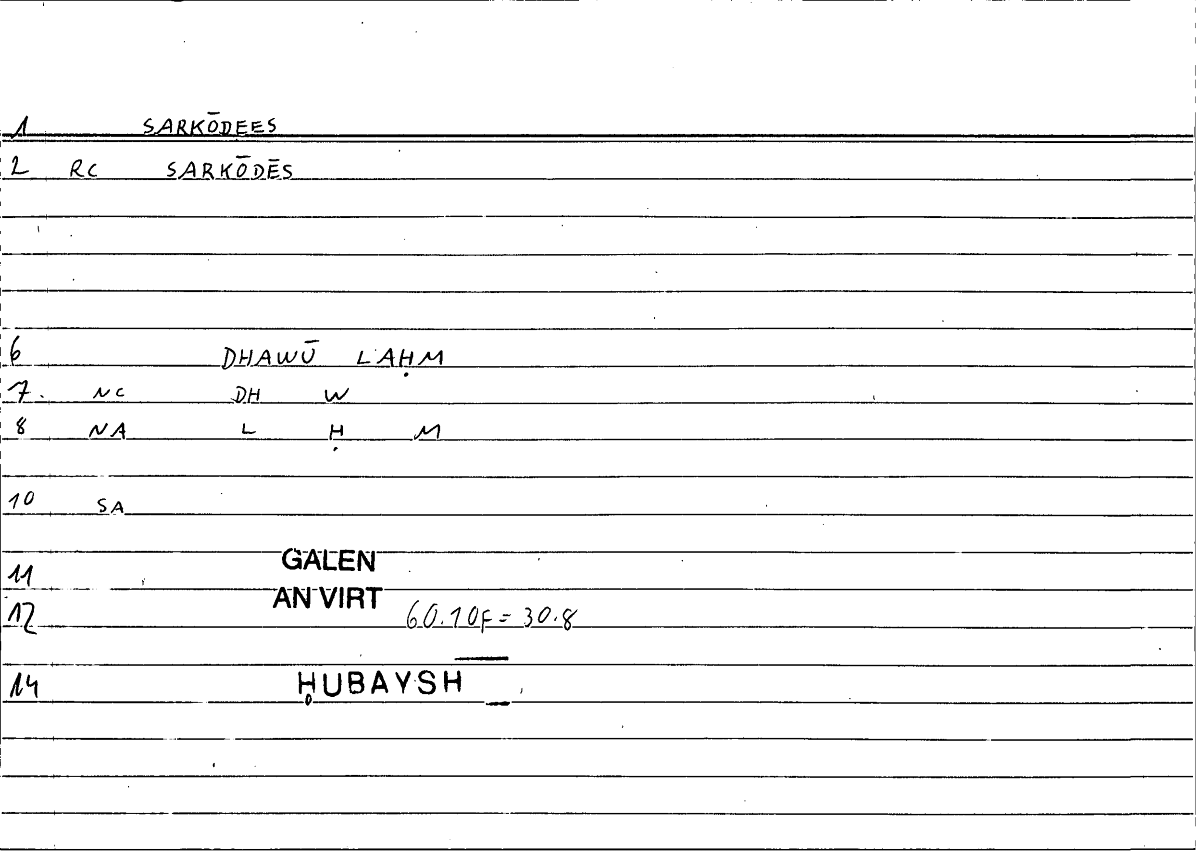 1 SARKŌDEES
2 RC SARKŌDĒS
6 DHAWŪ LAḤM
7. NC DH W
8 NA L Ḥ M
10 SA
11 GALEN
12 AN VIRT 60.10F = 30.8
14 ḤUBAYSH